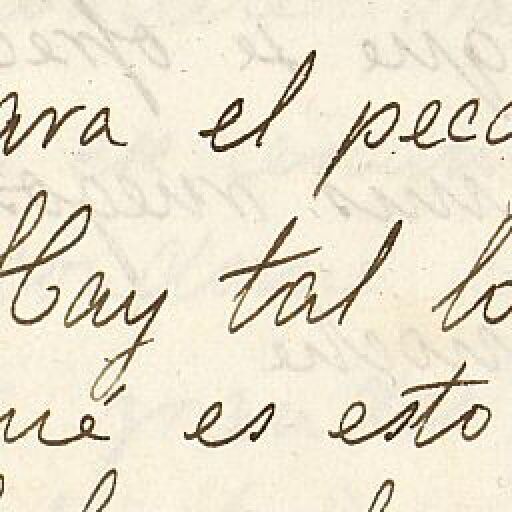 ara el pec
Hay tal lo
ué es esto